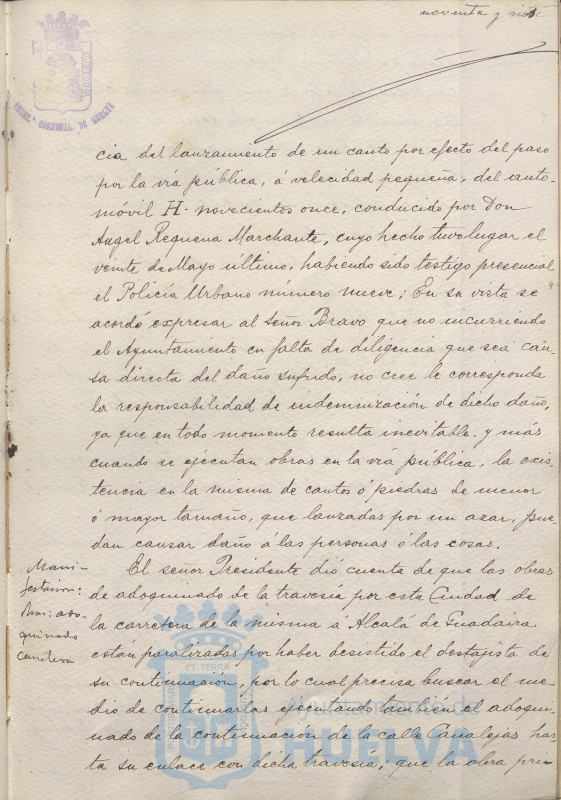 noventa y siete
ARCHº. COMERCIAL. DE HUELVA
cia del lanzamiento de un canto por efecto del paso
por la vía pública, á velocidad pequeña, del auto-
móvil H- novecientos once, conducido por Don
Angel Requena Marchante, cuyo hecho tuvo lugar el
veinte de Mayo último, habiendo sido testigo presencial
el Policía Urbano número nueve; En su vista se
acordó expresar al Señor Bravo que no incurriendo
el Ayuntamiento en falta de diligencia que sea cau-
sa directa del daño sufrido, no cree le corresponda
la responsabilidad de indemnización de dicho daño,
ya que en todo momento resulta inevitable, y más
cuando se ejecutan obras en la vía pública, la exis-
tencia en la misma de cantos ó piedras de menor
ó mayor tamaño, que lanzadas por un azar, pue-
dan causar daño á las personas ó las cosas.
Mani-
festacion:
adoquinado
carretera
El señor Presidente dió cuenta de que las obras
de adoquinado de la travesía por esta Ciudad de
la carretera de la misma á Alcalá de Guadaira
están paralizadas por haber desistido el destajista de
su continuación, por lo cual precisa buscar el me-
dio de continuarlas ejecutando también el adoqui-
nado de la continuación de la calle Canalejas has-
ta su enlace con dicha travesía; que la obra pri-
Ayuntamiento de
HUELVA